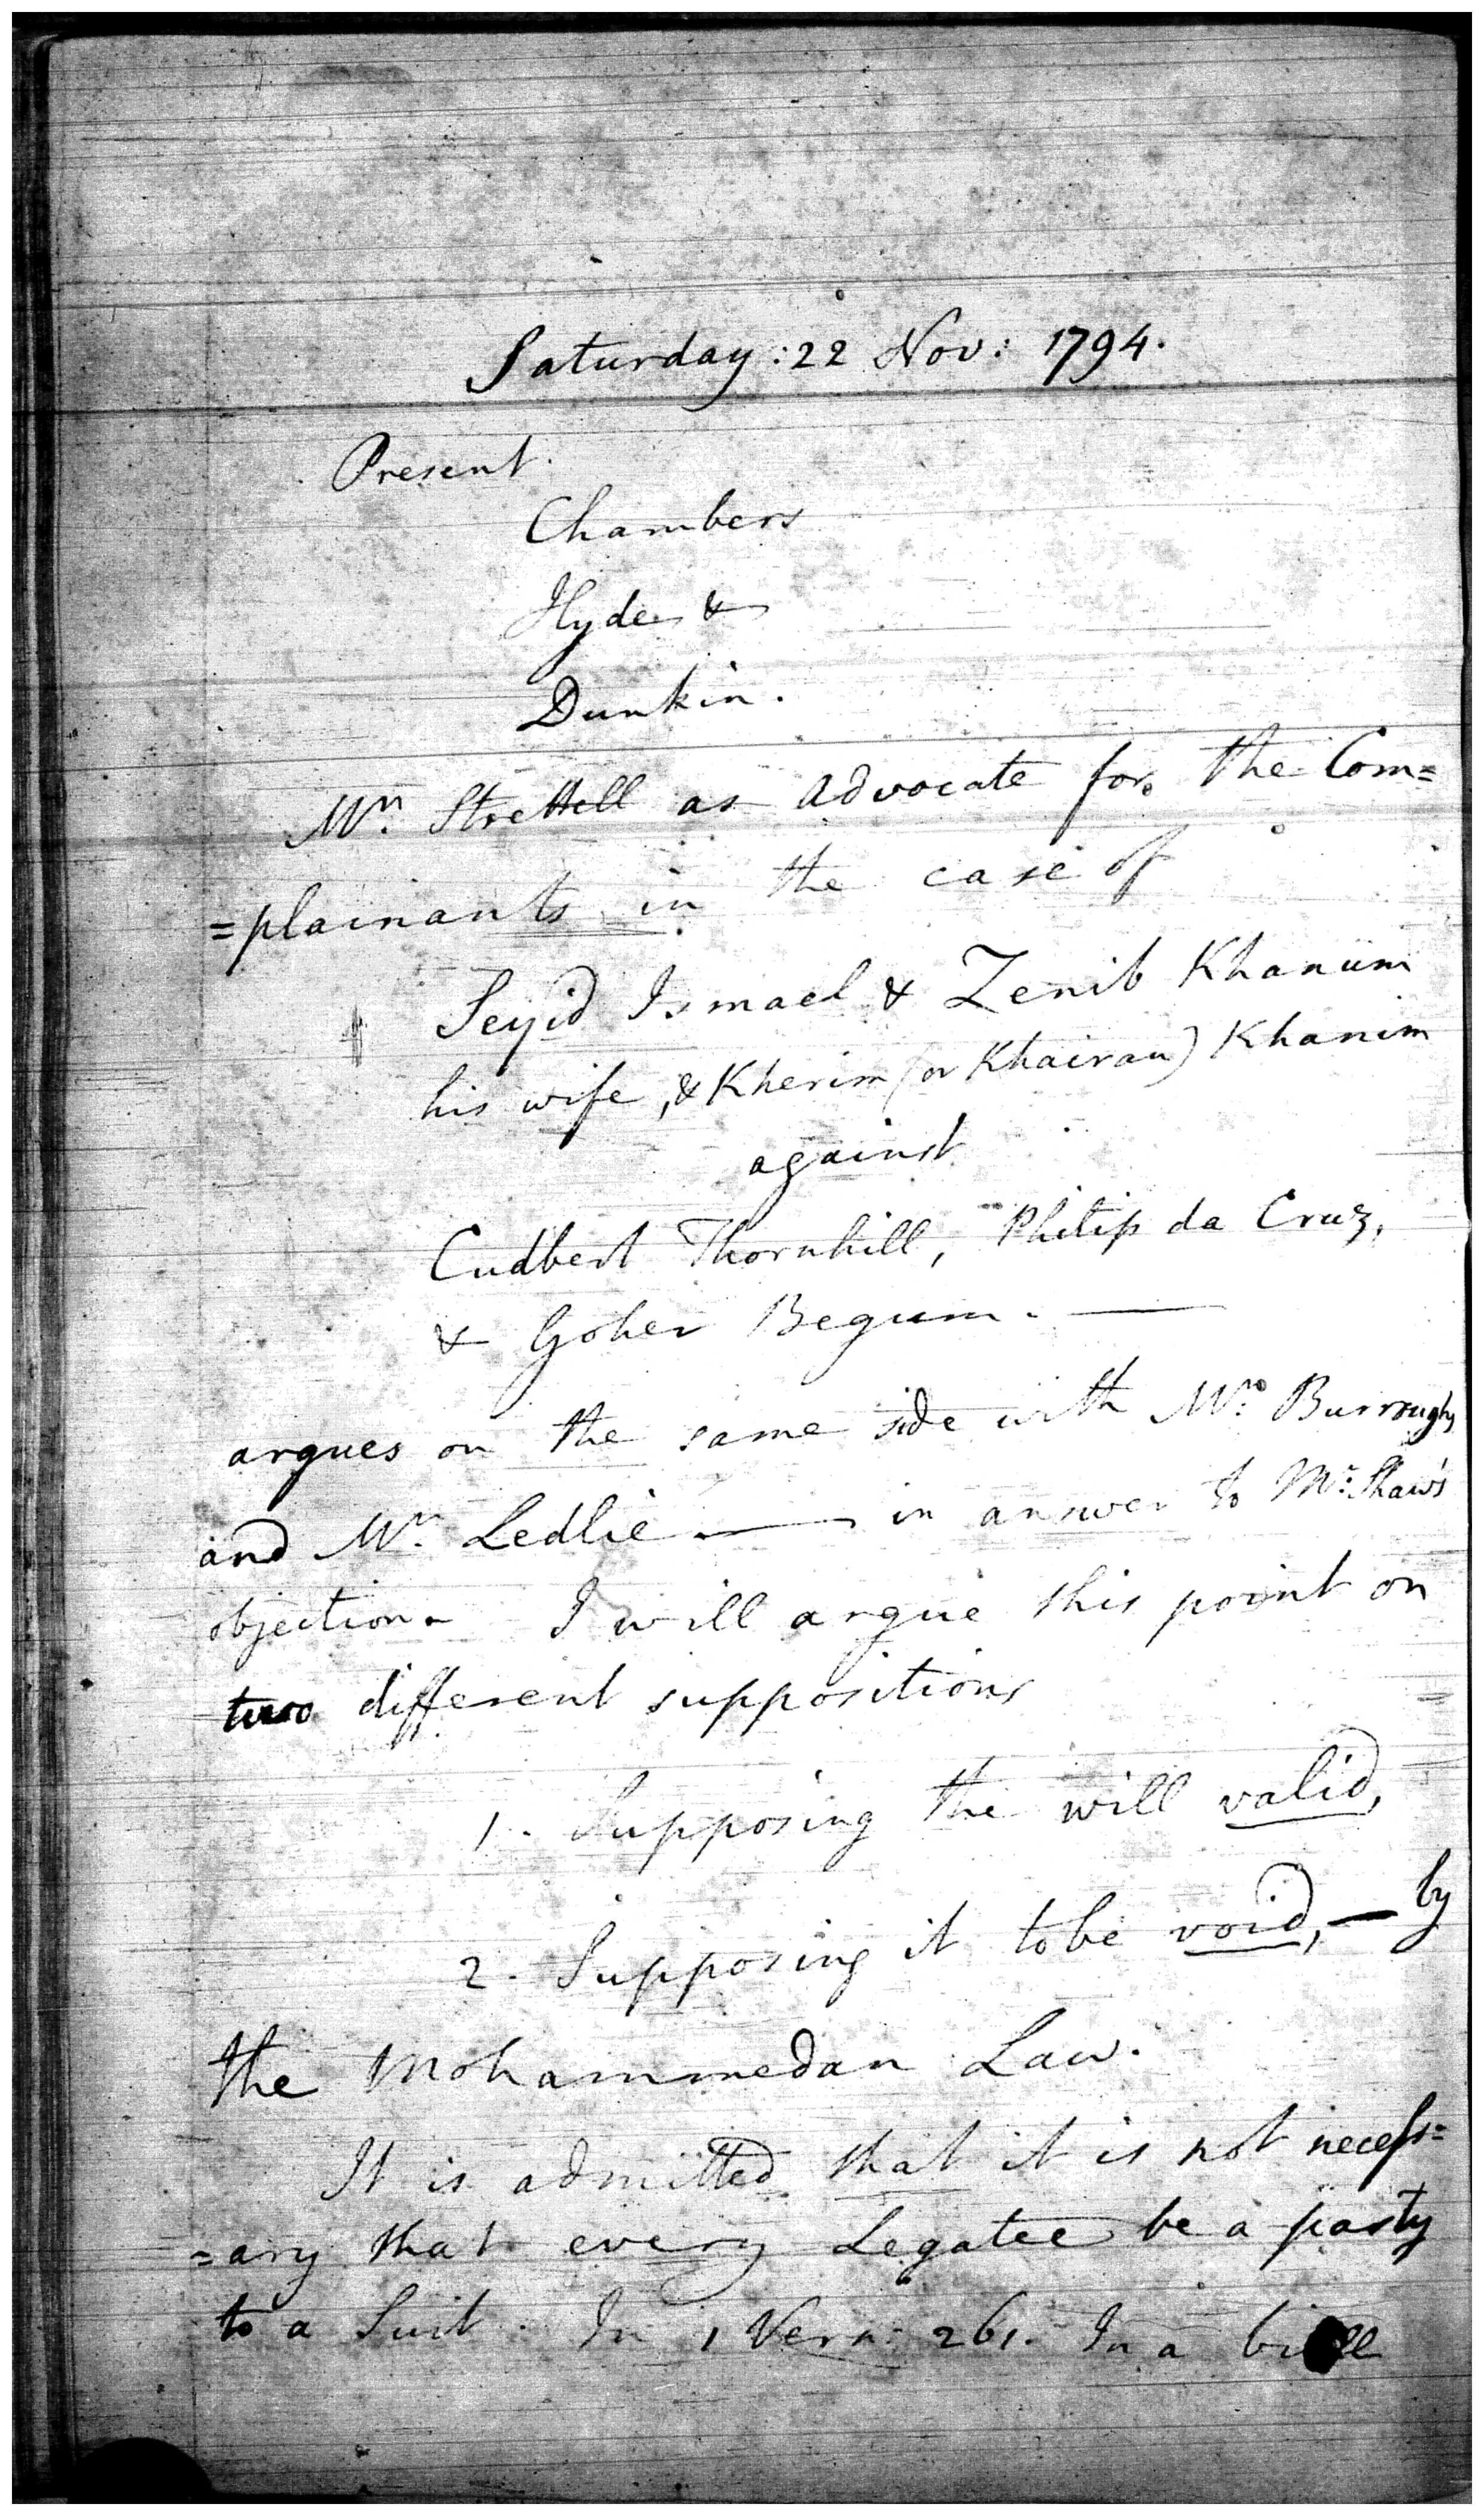 Saturday: 22 Nov: 1794.
Present.
Chambers
Hyde &
Dunkin.
Mr. Strettell as Advocate for the Com=
=plainants in the case of
Seyid Ismael & Zenib Khanum
his wife, & Kherim (or Khairan) Khanim
against
Cudbert Thornhill, Philip da Cruz,
& Goher Begum. —
argues on the same side with Mr. Burroughs
and Mr. Ledlie — in answer to Mr. Shaw's
objection. I will argue this point on
two different suppositions
1. Supposing the will valid,
2. Supposing it to be void, — by
the Mohammedan Law.
It is admitted that it is not necess=
=ary that every Legatee be a party
to a Suit. In 1 Vern: 261. In a bill